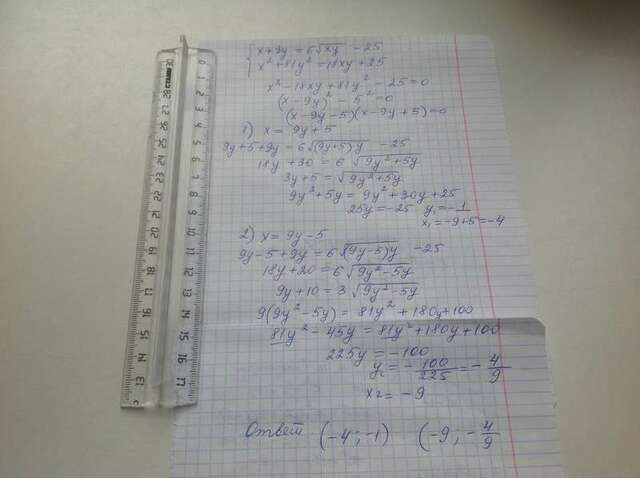 x+9y = 6√xy - 25
x² + 81y² = 18xy + 25
x² - 18xy + 81y² - 25 = 0
(x - 9y)² - 5² = 0
(x - 9y - 5)(x - 9y + 5) = 0
1) x = 9y + 5
9y + 5 + 9y = 6√(9y+5)y - 25
18y + 30 = 6√9y² + 5y
3y + 5 = √9y² + 5y
9y² + 5y = 9y² + 30y + 25
25y = -25 y₁ = -1
x₁ = -9+5 = -4
2) x = 9y - 5
9y - 5 + 9y = 6√(9y-5)y - 25
18y + 20 = 6√9y² - 5y
9y + 10 = 3√9y² - 5y
9(9y² - 5y) = 81y² + 180y + 100
81y² - 45y = 81y² + 180y + 100
225y = -100
y₂ = -100/225 = -4/9
x₂ = -9
Ответ (-4; -1) (-9; -4/9